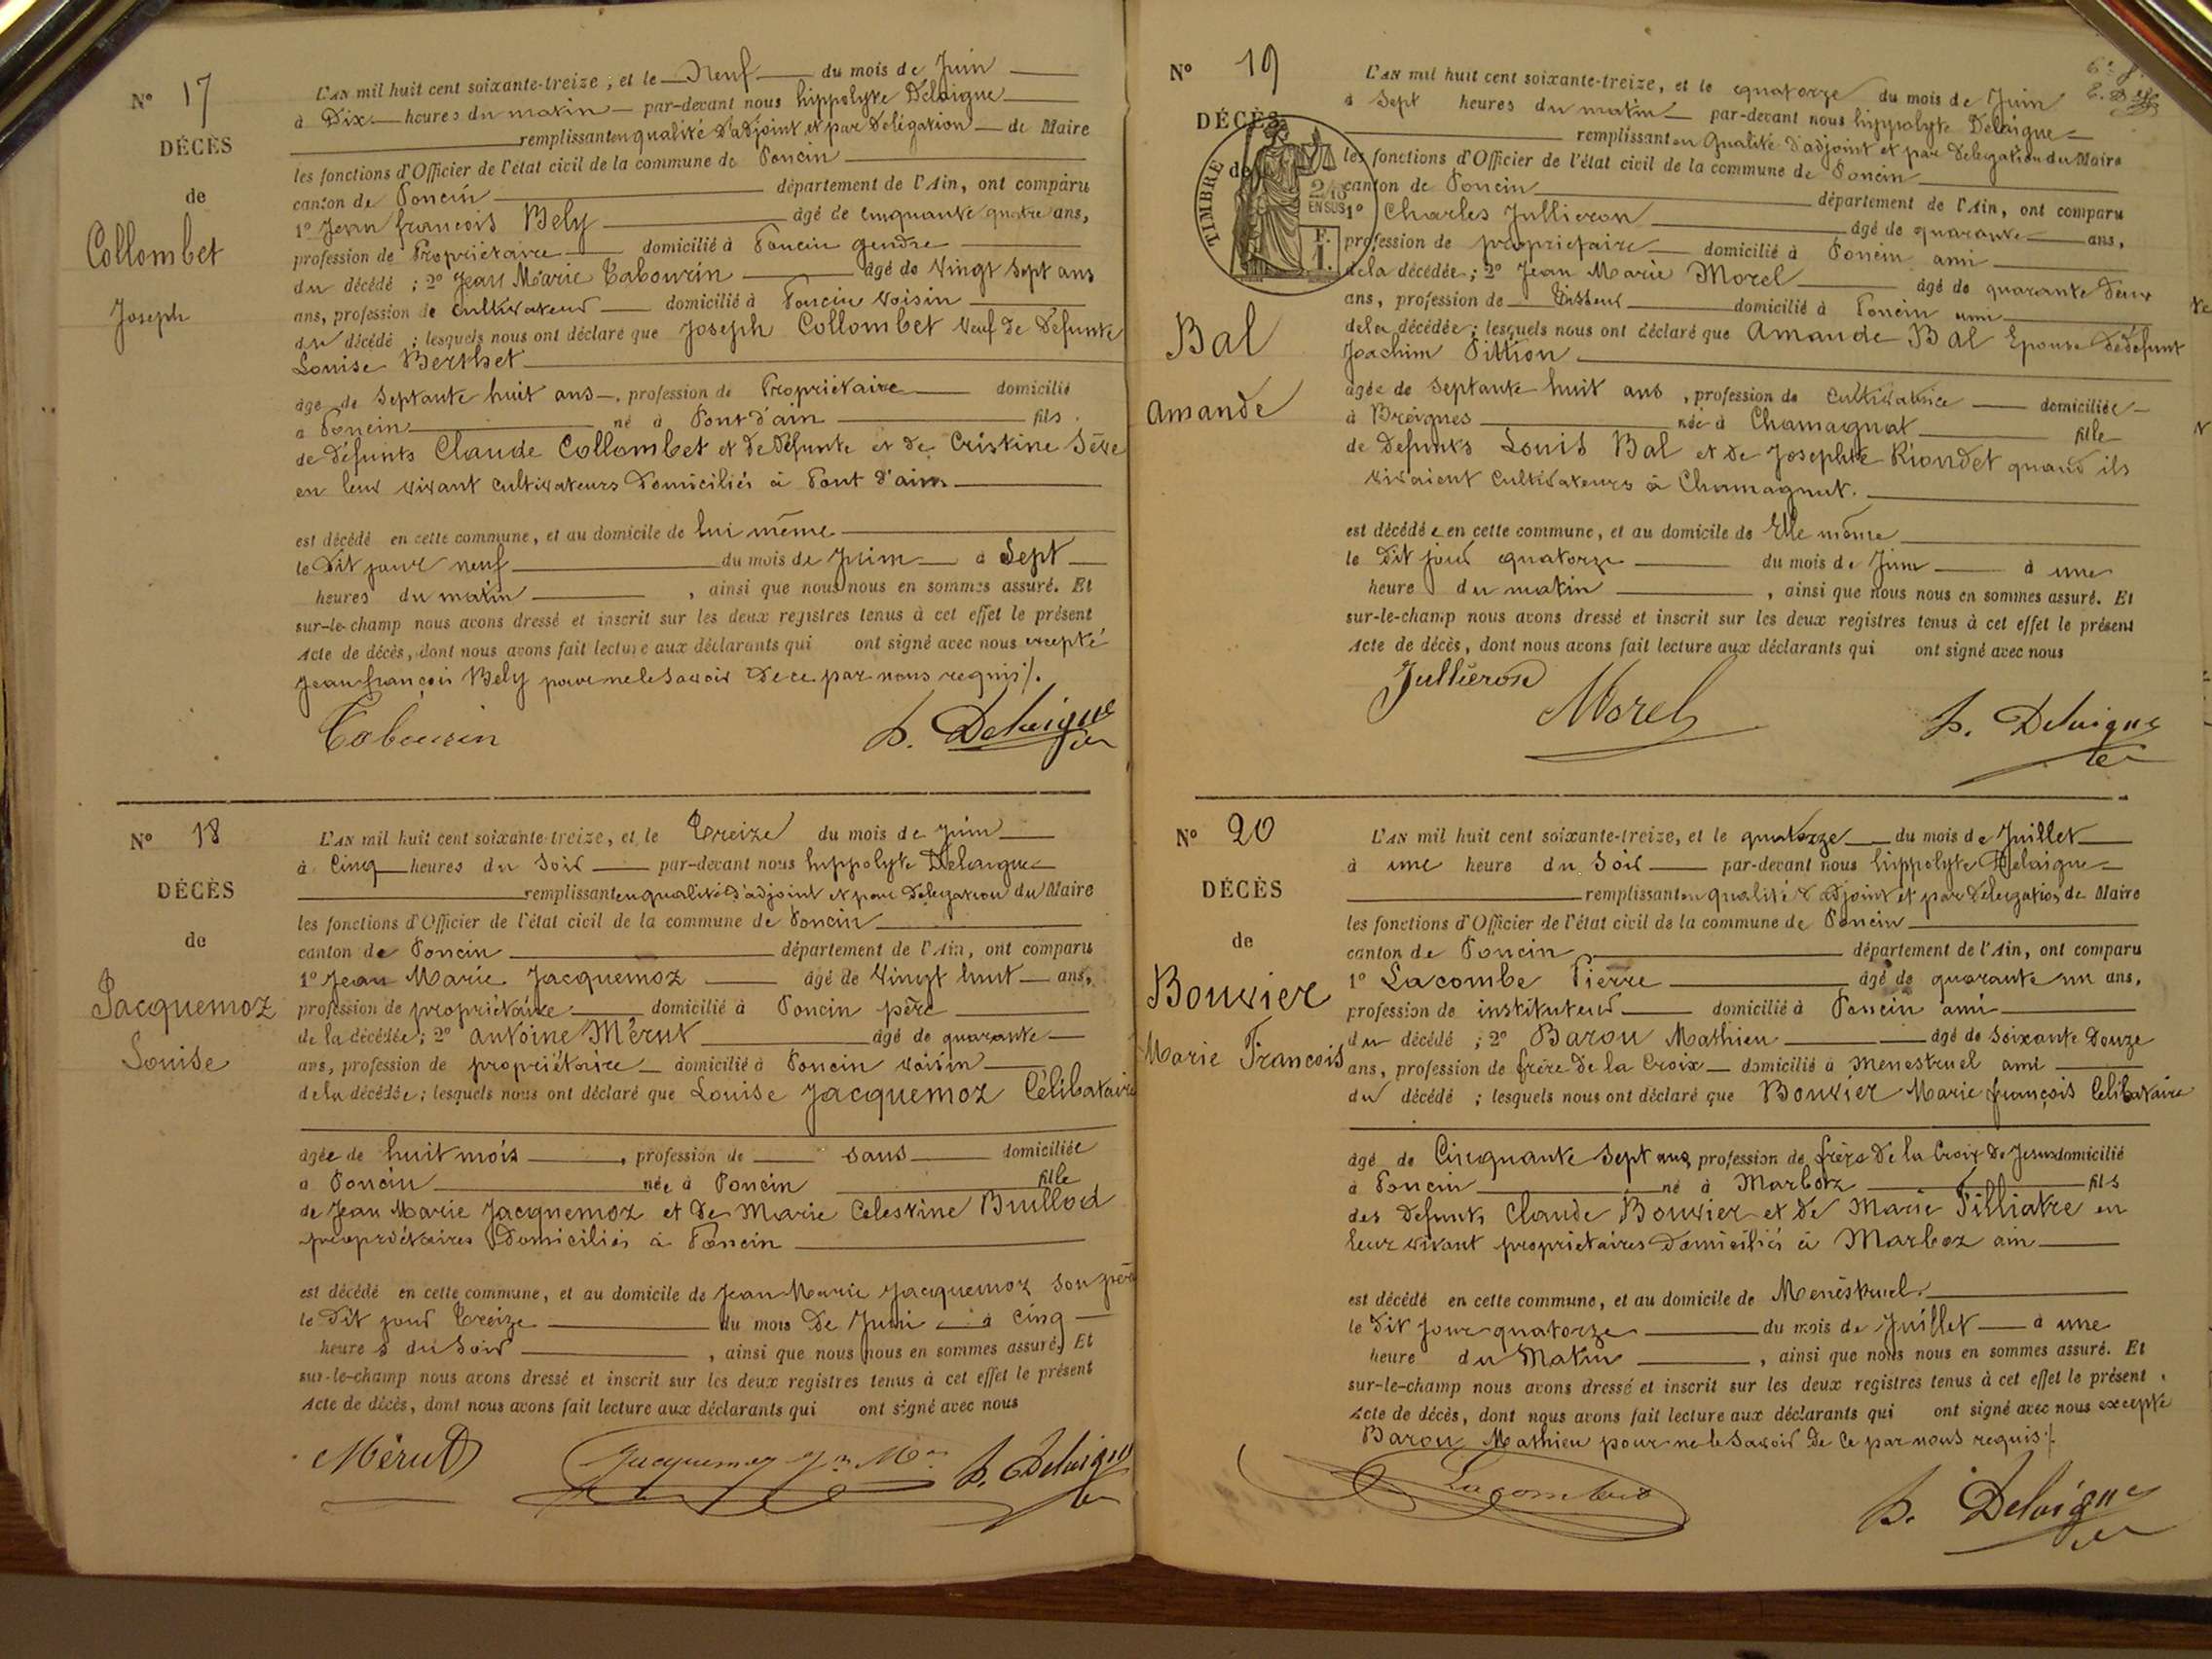 N° 17
DÉCÈS
de
Collombet
Joseph
L'AN mil huit cent soixante-treize, et le Neuf du mois de Juin
à Dix heures du matin par-devant nous hippolyte Delaigue
remplissant en qualité d'adjoint et par délégation de Maire
les fonctions d'Officier de l'état civil de la commune de Poncin
canton de Poncin département de l'Ain, ont comparu
1° Jean françois Bely âgé de cinquante quatre ans,
profession de Propriétaire domicilié à Poncin gendre
du décédé ; 2° Jean Marie Tabourin âgé de Vingt Sept ans
ans, profession de cultivateur domicilié à Poncin voisin
du décédé ; lesquels nous ont déclaré que Joseph Collombet Veuf de Défunte
Louise Berthet
âgé de Septante huit ans, profession de Propriétaire domicilié
à Poncin né à Pont d'ain fils
de défunts Claude Collombet et de Défunte et de Cristine Sève
en leur vivant cultivateurs Domiciliés à Pont d'ain
est décédé en cette commune, et au domicile de lui même
le Dit jour neuf du mois de Juin à Sept
heures du matin , ainsi que nous nous en sommes assuré. Et
sur-le-champ nous avons dressé et inscrit sur les deux registres tenus à cet effet le présent
Acte de décès, dont nous avons fait lecture aux déclarants qui ont signé avec nous excepté
Jean françois Bely pour ne le Savoir De ce par nous requis /.
Tabourin h. Delaigue
N° 18
DÉCÈS
de
Jacquemoz
Louise
L'AN mil huit cent soixante-treize, et le Treize du mois de Juin
à Cinq heures du Soir par-devant nous hippolyte Delaigue
remplissant en qualité d'adjoint et par Délégation du Maire
les fonctions d'Officier de l'état civil de la commune de Poncin
canton de Poncin département de l'Ain, ont comparu
1° Jean Marie Jacquemoz âgé de Vingt huit ans,
profession de propriétaire domicilié à Poncin père
de la décédée; 2° antoine Mérut âgé de quarante
ans, profession de propriétaire domicilié à Poncin voisin
de la décédée; lesquels nous ont déclaré que Louise Jacquemoz Célibataire
âgée de huit mois , profession de sans domiciliée
à Poncin née à Poncin fille
de Jean Marie Jacquemoz et de Marie Celestine Buillod
propriétaires Domiciliés à Poncin
est décédé en cette commune, et au domicile de Jean Marie Jacquemoz son père
le Dit jour Treize du mois De Juin à cinq
heures du Soir , ainsi que nous nous en sommes assuré. Et
sur-le-champ nous avons dressé et inscrit sur les deux registres tenus à cet effet le présent
Acte de décès, dont nous avons fait lecture aux déclarants qui ont signé avec nous
Mérut Jacquemoz Jn Mie h. Delaigue
N° 19
DÉCÈS
de
TIMBRE
2/10
EN SUS
F.
1.
Bal
Amande
L'AN mil huit cent soixante-treize, et le quatorze du mois de Juin
à Sept heures du matin par-devant nous hippolyte Delaigue
remplissant en qualité d'adjoint et par délégation du Maire
les fonctions d'Officier de l'état civil de la commune de Poncin
canton de Poncin département de l'Ain, ont comparu
1° Charles Jullieron âgé de quarante ans,
profession de propriétaire domicilié à Poncin ami
de la décédée; 2° Jean Marie Morel âgé de quarante Deux
ans, profession de Tisseur domicilié à Poncin ami
de la décédée; lesquels nous ont déclaré que Amande Bal Epouse de défunt
Joachim Pittion
âgée de Septante huit ans, profession de cultivatrice domiciliée
à Breignes née à Chamagnat fille
de Défunts Louis Bal et de Josephte Riondet quand ils
vivaient cultivateurs à Chamagnat.
est décédée en cette commune, et au domicile de Elle même
le Dit jour quatorze du mois de Juin à une
heure du matin , ainsi que nous nous en sommes assuré. Et
sur-le-champ nous avons dressé et inscrit sur les deux registres tenus à cet effet le présent
Acte de décès, dont nous avons fait lecture aux déclarants qui ont signé avec nous
Jullieron Morel h. Delaigue
N° 20
DÉCÈS
de
Bouvier
Marie François
L'AN mil huit cent soixante-treize, et le quatorze du mois de Juillet
à une heure du Soir par-devant nous hippolyte Delaigue
remplissant en qualité d'adjoint et par Délégation de Maire
les fonctions d'Officier de l'état civil de la commune de Poncin
canton de Poncin département de l'Ain, ont comparu
1° Lacombe Pierre âgé de quarante un ans,
profession de instituteur domicilié à Poncin ami
du décédé ; 2° Barou Mathieu âgé de Soixante Douze
ans, profession de frère De la Croix domicilié à Menestruel ami
du décédé ; lesquels nous ont déclaré que Bouvier Marie françois Célibataire
âgé de Cinquante Sept ans, profession de frère De la Croix De Jesus domicilié
à Poncin né à Marboz fils
des Défunts Claude Bouvier et De Marie Pilliatre en
leur vivant propriétaires Domiciliés à Marboz ain
est décédé en cette commune, et au domicile de Menestruel.
le Dit jour quatorze du mois de Juillet à une
heure du Matin , ainsi que nous nous en sommes assuré. Et
sur-le-champ nous avons dressé et inscrit sur les deux registres tenus à cet effet le présent
Acte de décès, dont nous avons fait lecture aux déclarants qui ont signé avec nous excepté
Barou Mathieu pour ne le Savoir De ce par nous requis /.
Lacombe h. Delaigue